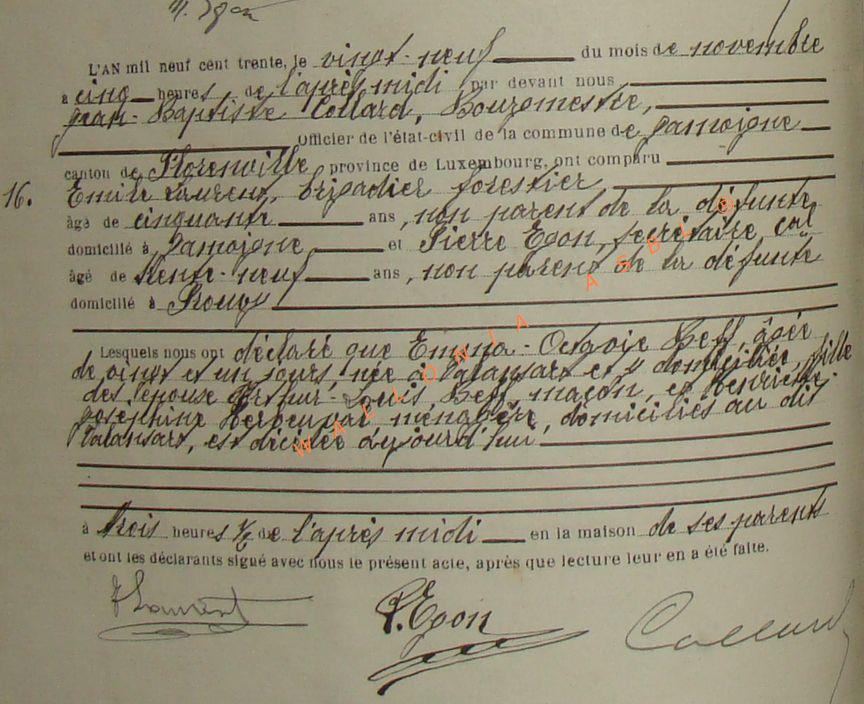 L'AN mil neuf cent trente, le vingt-neuf du mois de novembre
à cinq heures, de l'après midi, par devant nous
Jean-Baptiste Collard, Bourgmestre,
officier de l'état-civil de la commune de Jamoigne
canton de Florenville, province de Luxembourg, ont comparu
16. Emile Laurent, brigadier forestier
âgé de cinquante ans, non parent de la défunte
domicilié à Jamoigne et Pierre Egon, secrétaire, cal
âgé de trente-neuf ans, non parent de la défunte
domicilié à
Lesquels nous ont déclaré que Emma-Octavie Heff, âgée
de vingt et un jours, née à Valansart et y domiciliée, fille
des époux Arthur-Louis, Heff, maçon, et Henriette
Joséphine ménagère, domiciliés au dit
Valansart, est décédée aujourd'hui
à trois heures ½ de l'après midi en la maison de ses parents
et ont les déclarants signé avec nous le présent acte, après que lecture leur en a été faite.
Laurent P. Egon Collard